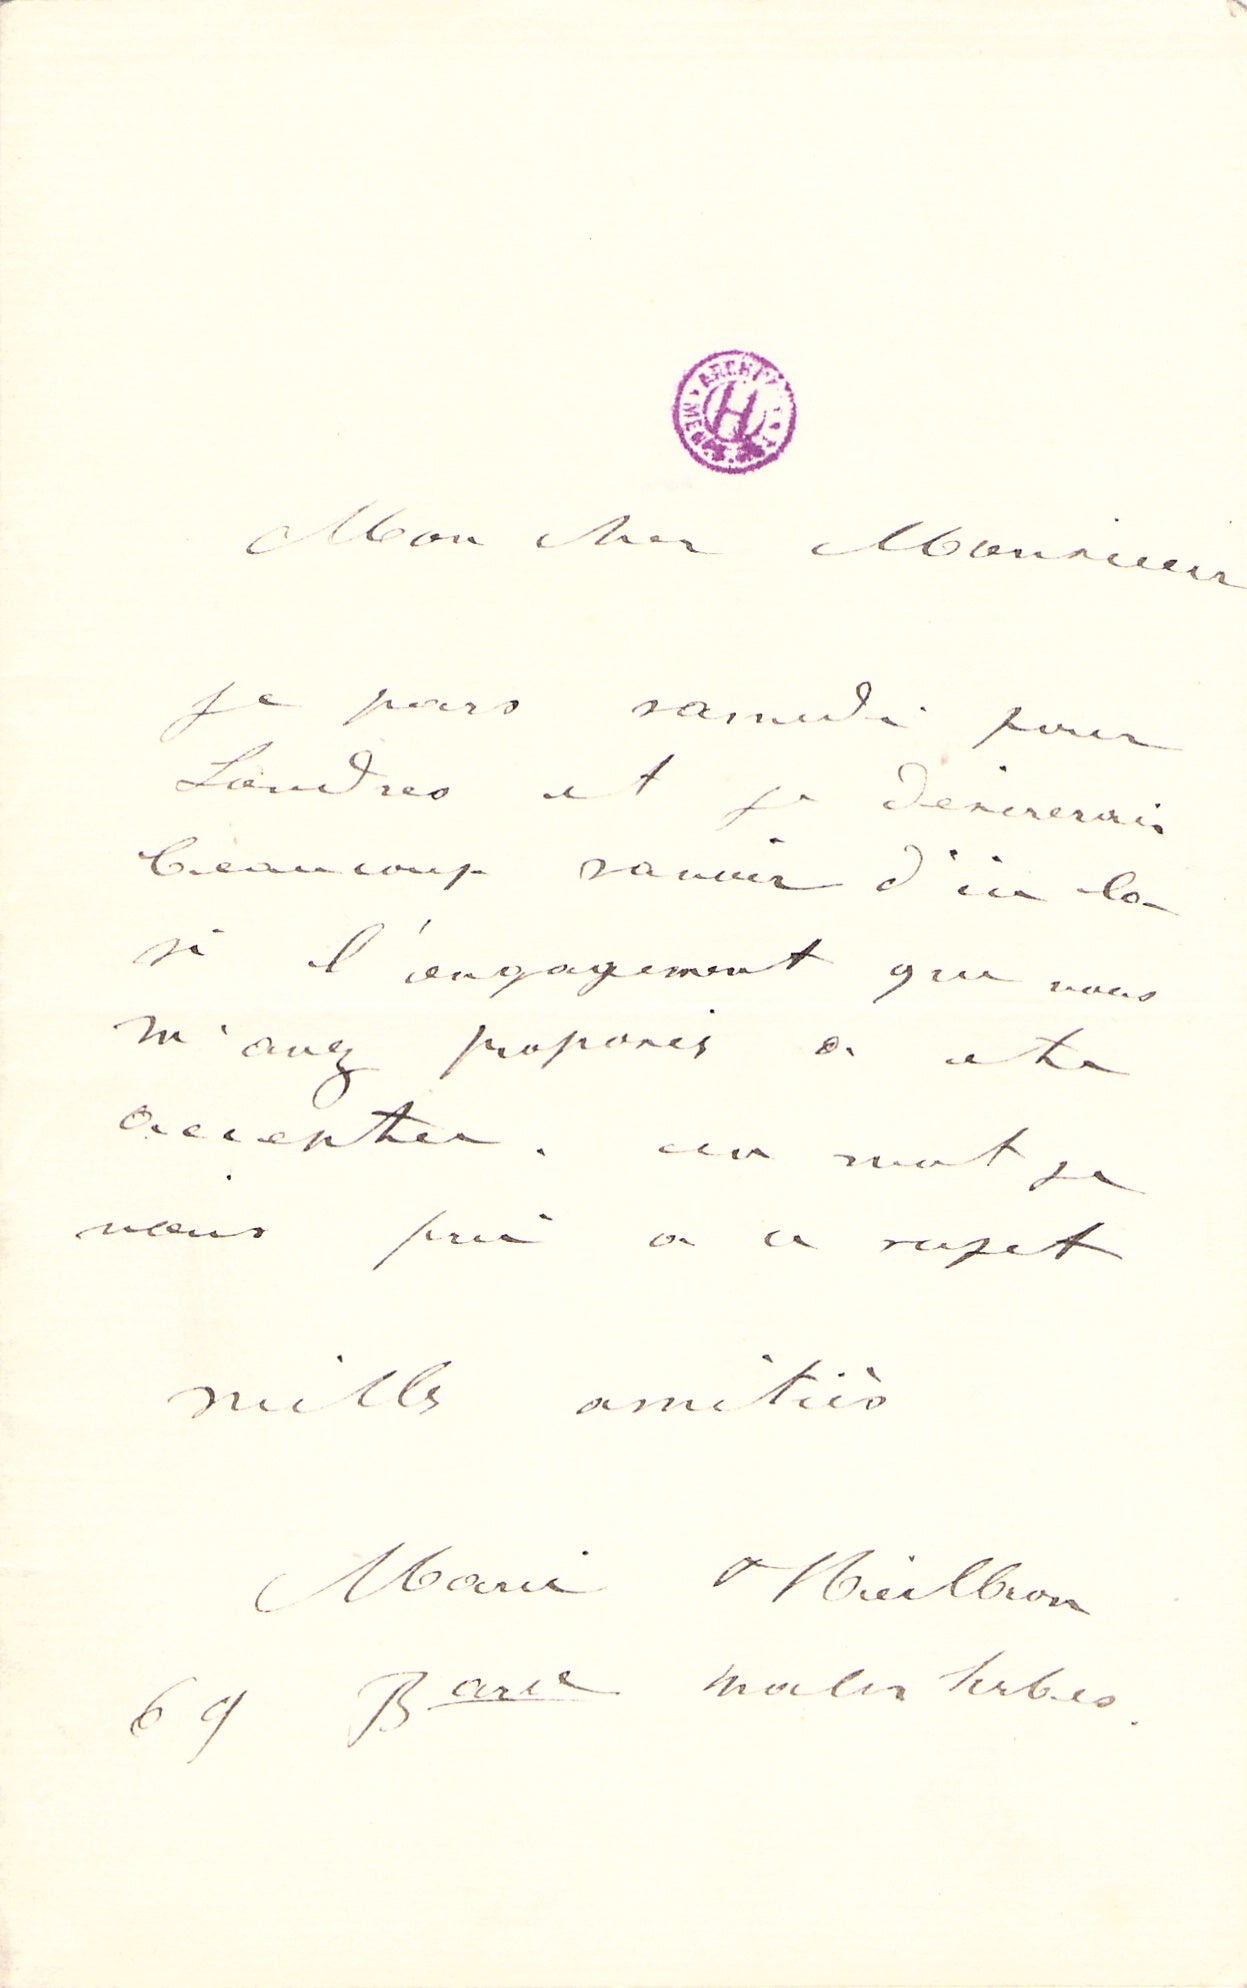 H
Mon cher Monsieur
je pars samedi pour
Londres et je desirerais
beaucoup savoir d'ici la
si l'engagement que vous
m'avez proposés a ete
accepter. un mot je
vous prie a ce sujet
mille amitiés
Marie Heilbron
69 Bard malesherbes.